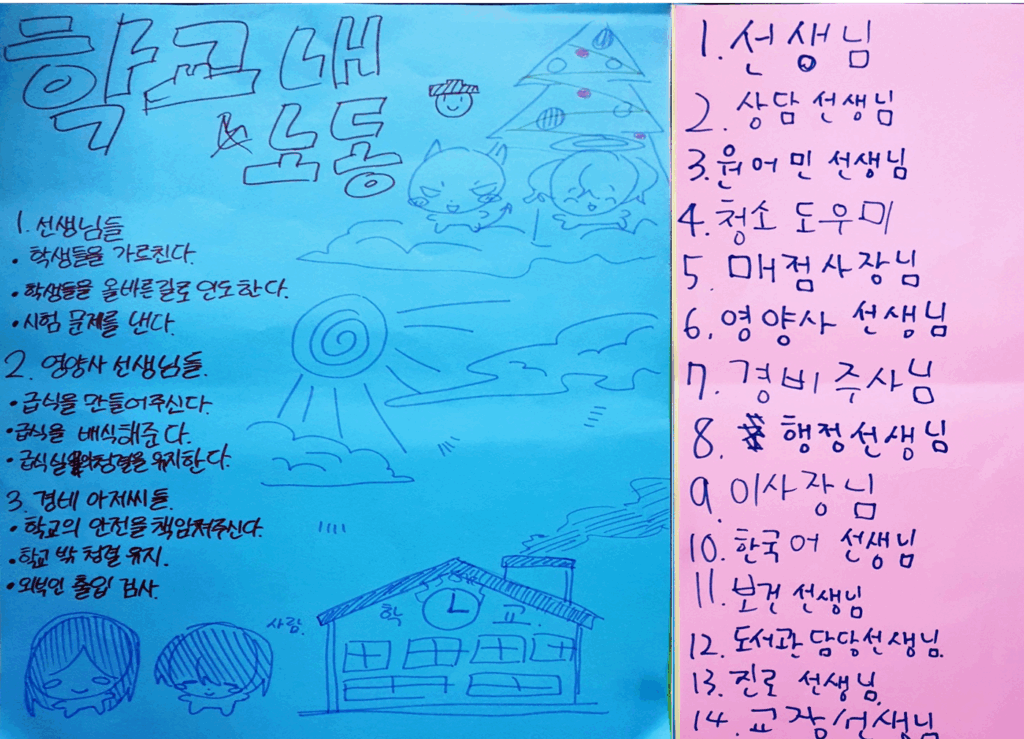 학교 내
노동
1. 선생님들
• 학생들을 가르친다.
• 학생들을 올바른길로 인도한다.
• 시험 문제를 낸다.
2. 영양사 선생님들.
• 급식을 만들어주신다.
• 급식을 배식해준다.
• 급식실의 청결을 유지한다.
3. 경비 아저씨들.
• 학교의 안전을 책임져주신다.
• 학교 밖 청결 유지.
• 외부인 출입 검사.
사람.
학 교.
1. 선생님
2. 상담 선생님
3. 원어민 선생님
4. 청소 도우미
5. 매점사장님
6. 영양사 선생님
7. 경비주사님
8. 행정선생님
9. 이사장님
10. 한국어 선생님
11. 보건 선생님
12. 도서관담당선생님
13. 진로 선생님
14. 교장선생님